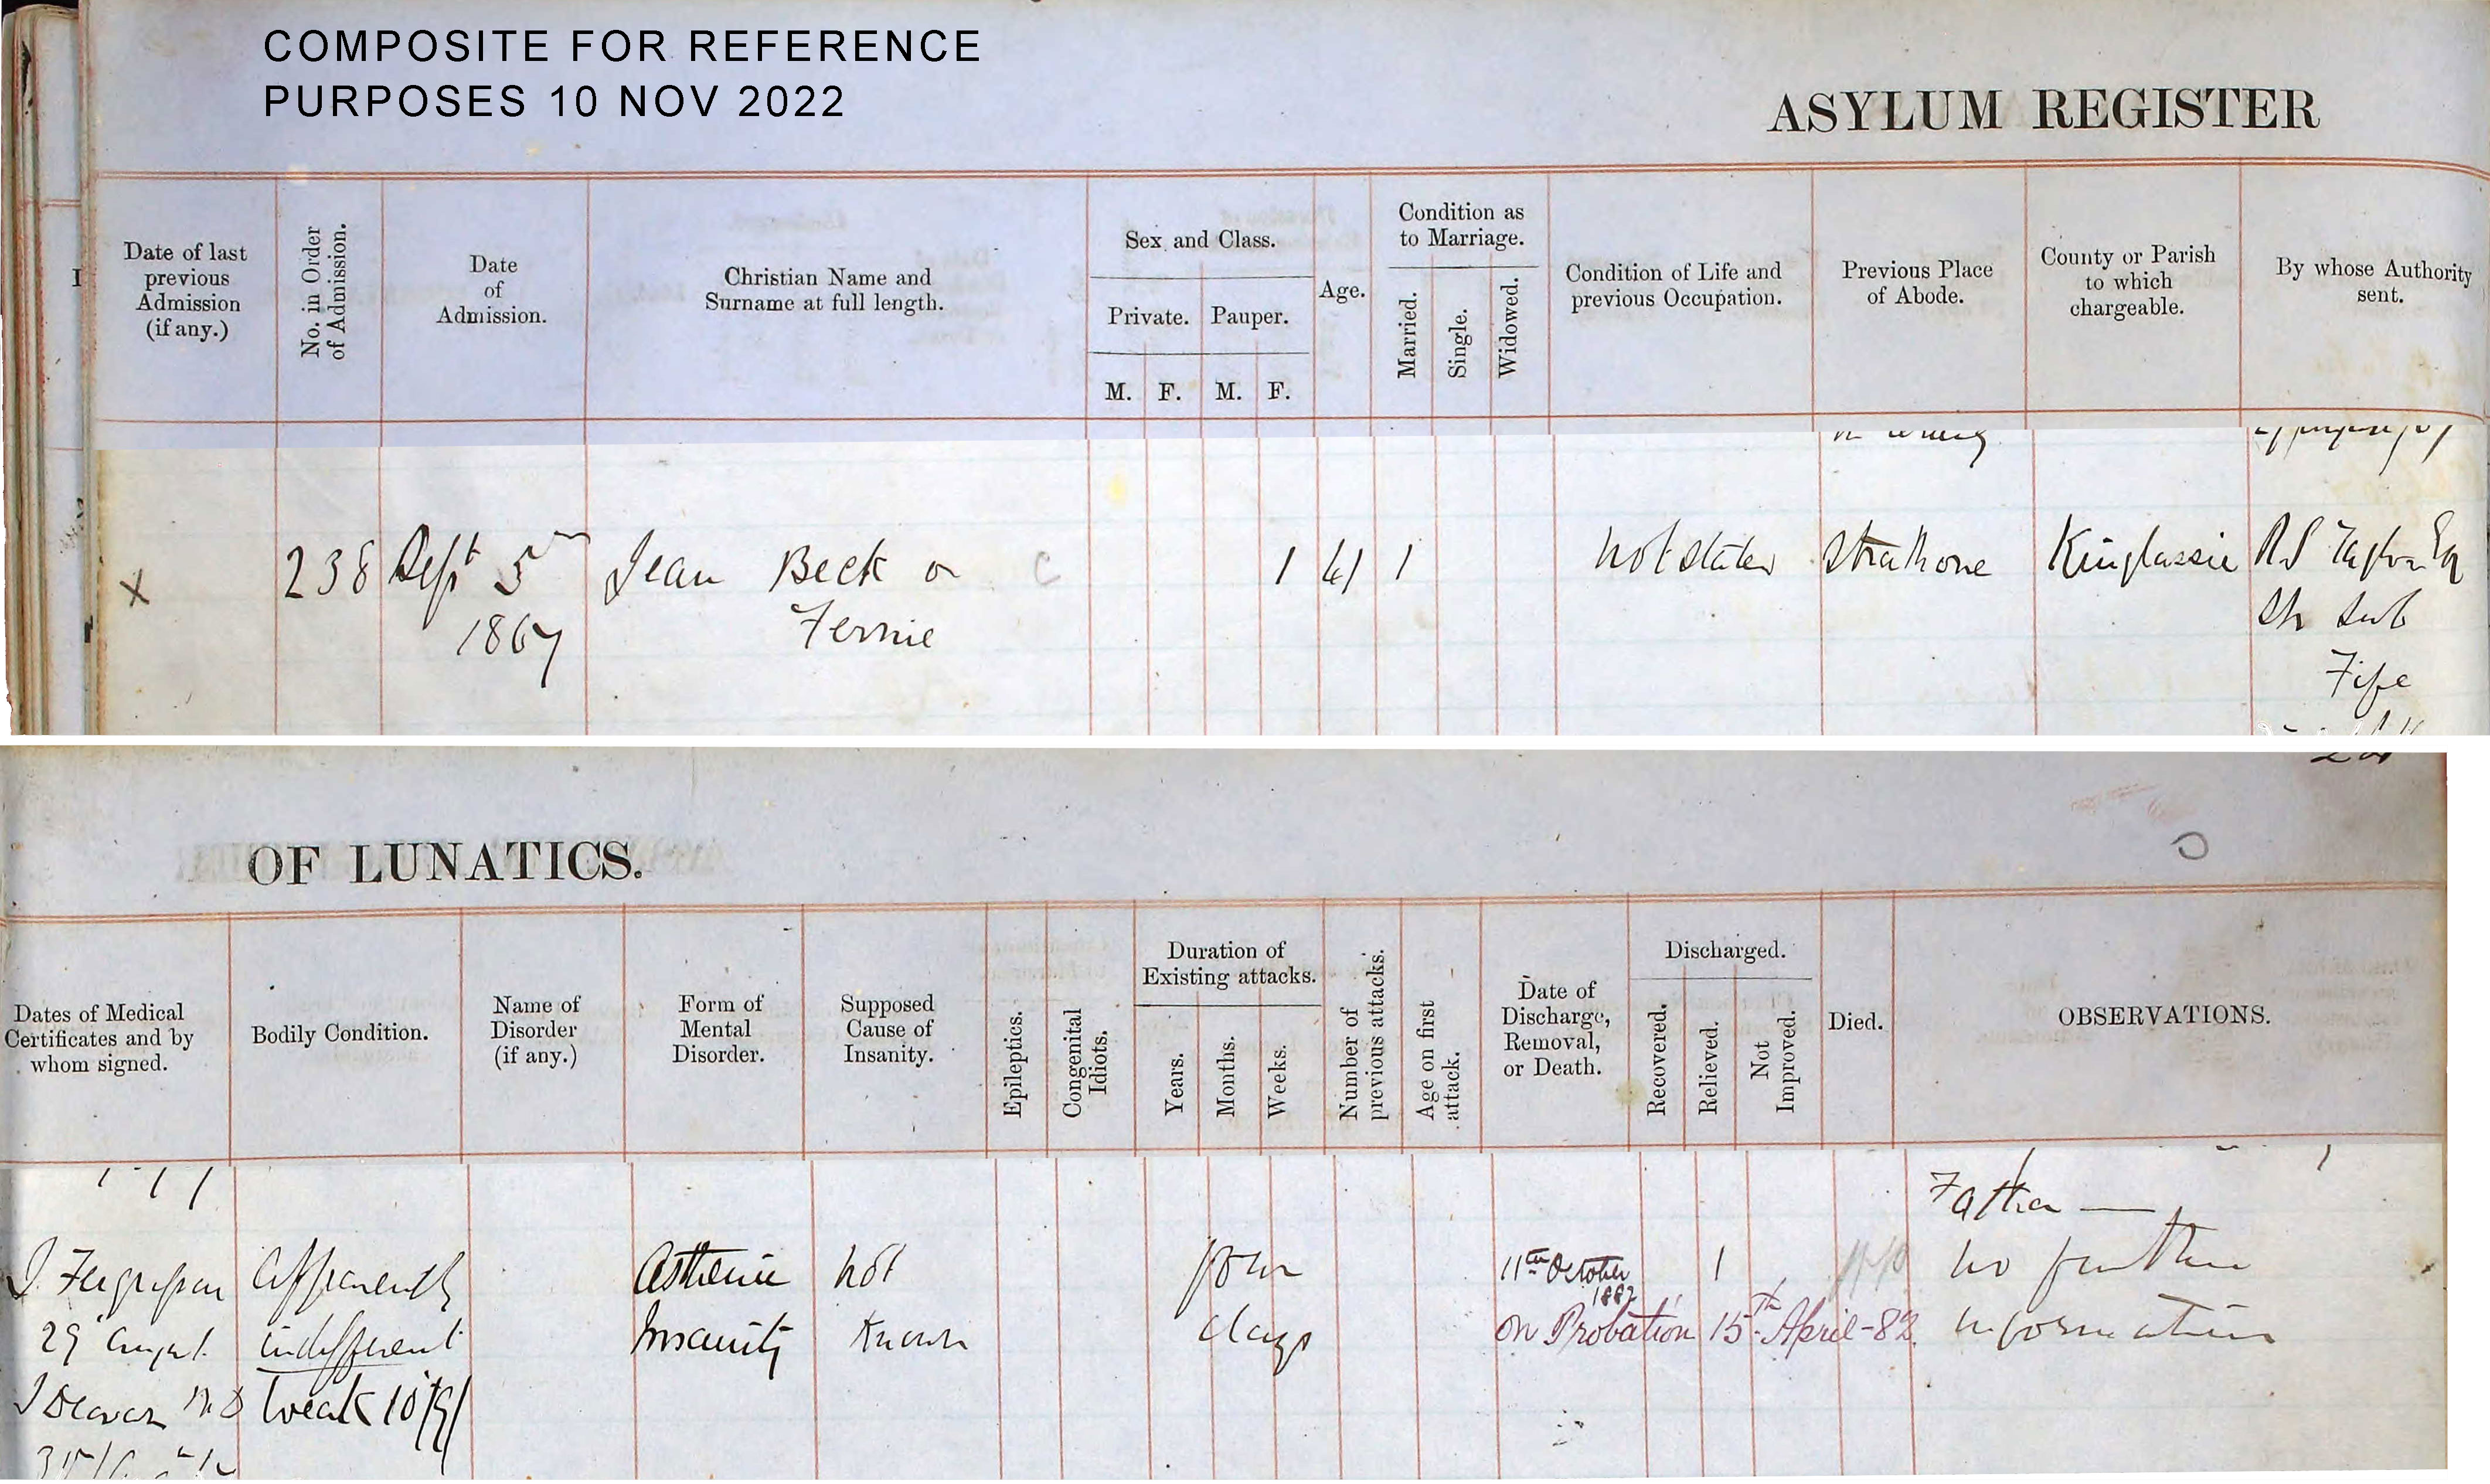 COMPOSITE FOR REFERENCE
PURPOSES 10 NOV 2022
ASYLUM REGISTER
Date of last
previous
Admission
(if any.)
No. in Order
of Admission.
Date
of
Admission.
Christian Name and
Surname at full length.
Sex and Class.
Private. Pauper.
M. F. M. F.
Age.
Condition as
to Marriage.
Married.
Single.
Widowed.
Condition of Life and
previous Occupation.
Previous Place
of Abode.
County or Parish
to which
chargeable.
By whose Authority
sent.
X 238 Sept 5 Jean Beck or C 1 41 1 not stated Kinglassie
1867 Fernie Sh Sub
Fife
OF LUNATICS.
Dates of Medical
Certificates and by
whom signed.
Bodily Condition.
Name of
Disorder
(if any.)
Form of
Mental
Disorder.
Supposed
Cause of
Insanity.
Epileptics.
Congenital
Idiots.
Duration of
Existing attacks.
Years.
Months.
Weeks.
Number of
previous attacks.
Age on first
attack.
Date of
Discharge,
Removal,
or Death.
Discharged.
Recovered.
Relieved.
Not
Improved.
Died.
OBSERVATIONS.
Father —
Apparently Asthenic not four 11th October 1 no further
1882
29 August indifferent Insanity known days on Probation 15th April - 82. information
weak